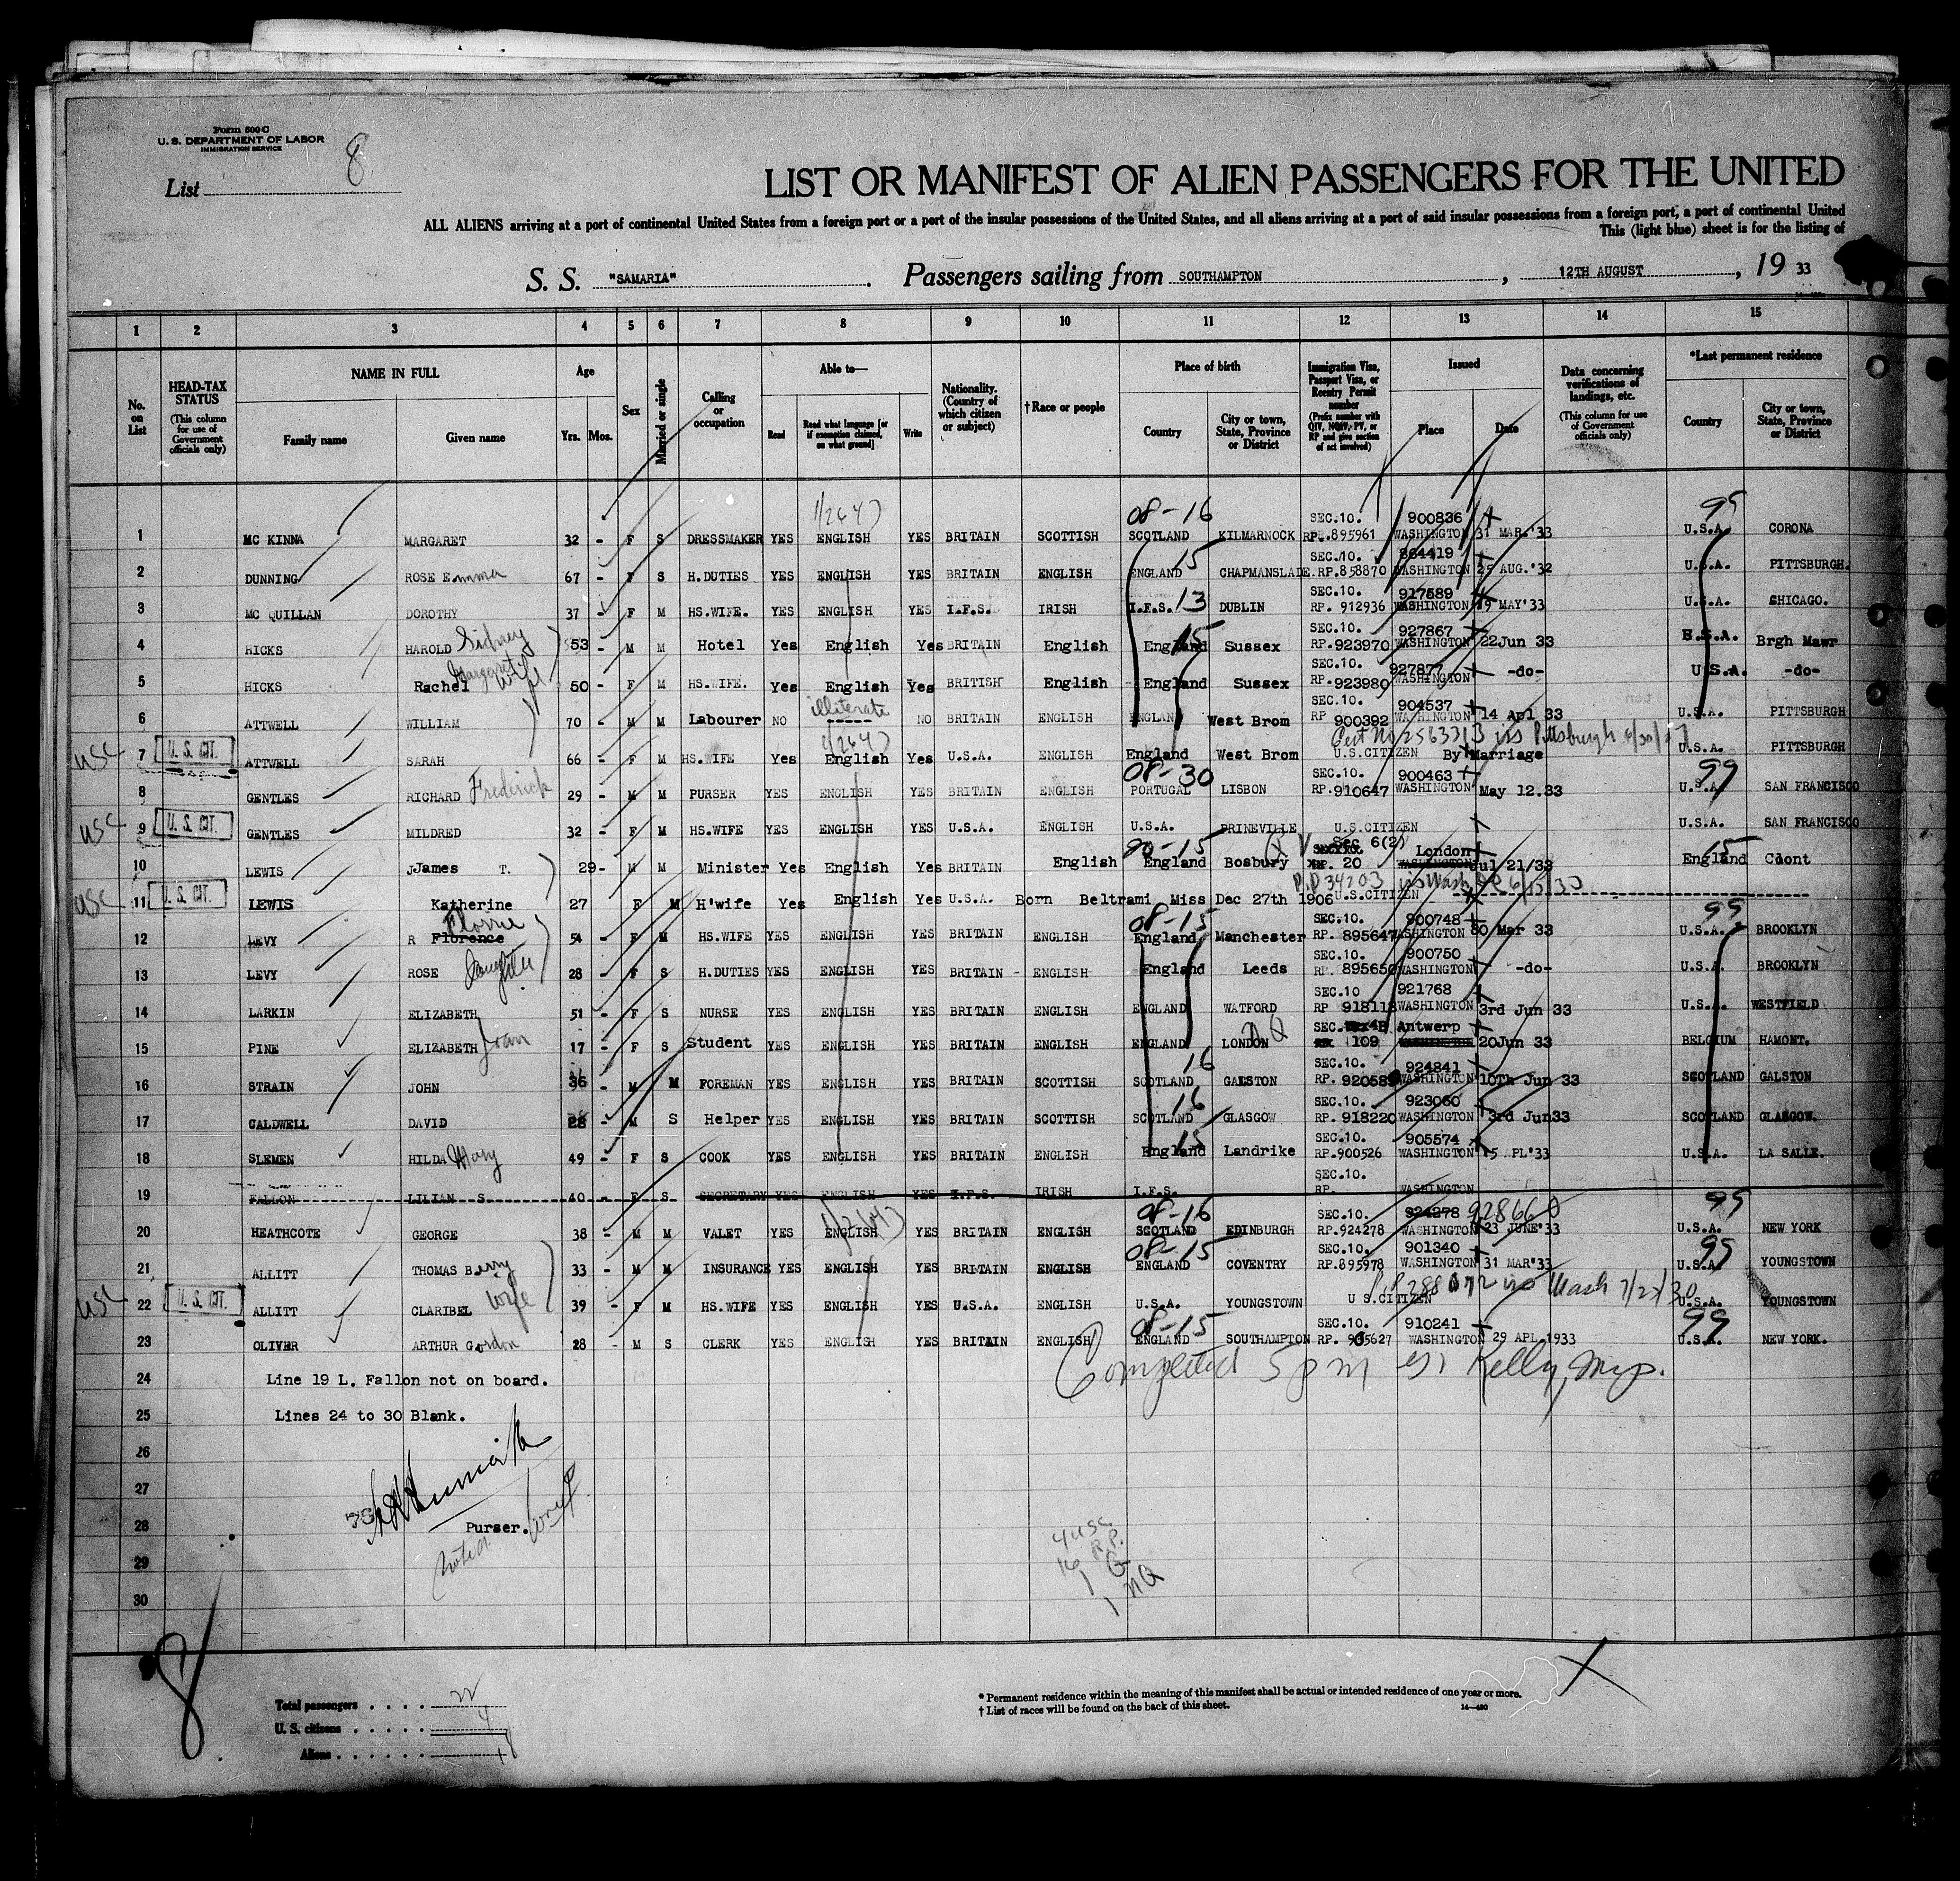 Form 500 C
U. S. DEPARTMENT OF LABOR
IMMIGRATION SERVICE
List 8
LIST OR MANIFEST OF ALIEN PASSENGERS FOR THE UNITED
ALL ALIENS arriving at a port of continental United States from a foreign port or a port of the insular possessions of the United States, and all aliens arriving at a port of said insular possessions from a foreign port, a port of continental United
This (light blue) sheet is for the listing of
S. S. "SAMARIA" . Passengers sailing from SOUTHAMPTON , 12TH AUGUST , 19 33
1 2 3 4 5 6 7 8 9 10 11 12 13 14 15
No. on List
HEAD-TAX STATUS (This column for use of Government officials only)
NAME IN FULL Family name Given name
Age Yrs. Mos.
Sex
Married or single
Calling or occupation
Able to— Read Read what language [or if exemption claimed, on what ground] Write
Nationality. (Country of which citizen or subject)
†Race or people
Place of birth Country City or town, State, Province or District
Immigration Visa, Passport Visa, or Reentry Permit number (Prefix number with QIV, NQIV, PV, or RP and give section of act involved)
Issued Place Date
Data concerning verifications of landings, etc. (This column for use of Government officials only)
*Last permanent residence Country City or town, State, Province or District
1 MC KINNA MARGARET 32 - F S DRESSMAKER YES ENGLISH YES BRITAIN SCOTTISH 08-16 SCOTLAND KILMARNOCK SEC.10. RP.895961 900836 WASHINGTON 31 MAR.'33 99 U.S.A. CORONA
2 DUNNING ROSE Emma 67 - F S H.DUTIES YES ENGLISH YES BRITAIN ENGLISH ENGLAND 15 CHAPMANSLADE SEC.10. RP.858870 864419 WASHINGTON 25 AUG.'32 U.S.A. PITTSBURGH.
3 MC QUILLAN DOROTHY 37 - F M HS.WIFE. YES ENGLISH YES I.F.S. IRISH I.F.S. 13 DUBLIN SEC.10. RP. 912936 917589 WASHINGTON 19 MAY'33 U.S.A. CHICAGO.
4 HICKS HAROLD Sidney 53 - M M Hotel Yes English Yes BRITAIN English England 15 Sussex SEC.10. RP.923970 927867 WASHINGTON 22Jun 33 U.S.A. Brgh Mawr
5 HICKS Rachel Margaret wife 50 - F M HS.WIFE. Yes English Yes BRITISH English England Sussex SEC.10. RP.923980 927877 WASHINGTON -do- U.S.A. -do-
6 ATTWELL WILLIAM 70 - M M Labourer NO illiterate ----- NO BRITAIN ENGLISH ENGLAN West Brom SEC.10. RP 900392 904537 WASHINGTON 14 Apl 33 U.S.A. PITTSBURGH
usc U. S. CIT. 7 ATTWELL SARAH 66 - F M HS.WIFE Yes English Yes U.S.A. ENGLISH England West Brom Cert No 2563313 iss Pittsburgh U.S.CITIZEN By Marriage U.S.A. PITTSBURGH
8 GENTLES RICHARD Frederick 29 - M M PURSER YES ENGLISH YES BRITAIN ENGLISH 08-30 PORTUGAL LISBON SEC.10. RP.910647 900463 WASHINGTON May 12.33 99 U.S.A SAN FRANCISCO
usc U. S. CIT. 9 GENTLES MILDRED 32 - F M HS.WIFE YES ENGLISH YES U.S.A. ENGLISH U.S.A. PRINEVILLE U.S.CITIZEN U.S.A. SAN FRANCISCO
10 LEWIS James T. 29- M M Minister Yes English Yes BRITAIN English 90-15 England Bosbury Sec 6(2) RP. 20 London WASHINGTON Jul 21/33 15 England Clont
usc U. S. CIT. 11 LEWIS Katherine 27 F M H'wife Yes English Yes U.S.A. Born Beltrami Miss Dec 27th 1906 U.S.CITIZEN
12 LEVY R Florence Florrie 54 - F M HS.WIFE YES ENGLISH YES BRITAIN ENGLISH 08-15 England Manchester SEC.10. RP. 895647 900748 WASHINGTON 30 Mar 33 99 U.S.A. BROOKLYN
13 LEVY ROSE daughter 28 - F S H.DUTIES YES ENGLISH YES BRITAIN - ENGLISH England Leeds SEC.10. RP. 895650 900750 WASHINGTON -do- U.S.A. BROOKLYN
14 LARKIN ELIZABETH 51 - F S NURSE YES ENGLISH YES BRITAIN ENGLISH ENGLAND WATFORD SEC.10 RP 918118 921768 WASHINGTON 3rd Jun 33 U.S.A. WESTFIELD
15 PINE ELIZABETH Joan 17 - F S Student YES ENGLISH YES BRITAIN ENGLISH ENGLAND LONDON NQ SEC. 4E 109 Antwerp WASHINGTON 20Jun 33 BELGIUM HAMONT.
16 STRAIN JOHN 36 - M M FOREMAN YES ENGLISH YES BRITAIN SCOTTISH 16 SCOTLAND GALSTON SEC.10. RP. 920589 924841 WASHINGTON 10Th Jun 33 SCOTLAND GALSTON
17 CALDWELL DAVID 28 - M S Helper YES ENGLISH YES BRITAIN SCOTTISH 16 SCOTLAND GLASGOW SEC.10. RP. 918220 923060 WASHINGTON 3rd Jun33 SCOTLAND GLASGOW.
18 SLEMEN HILDA Mary 49 - F S COOK YES ENGLISH YES BRITAIN ENGLISH England 15 Landrike SEC.10. RP.900526 905574 WASHINGTON 15 PL'33 U.S.A. LA SALLE.
19 FALLON LILIAN S. 40 - F S SECRETARY YES ENGLISH YES I.F.S. IRISH I.F.S. SEC.10. RP. WASHINGTON
20 HEATHCOTE GEORGE 38 - M M VALET YES ENGLISH YES BRITAIN ENGLISH 08-16 SCOTLAND EDINBURGH SEC.10. RP.924278 924278 928660 WASHINGTON 23 JUNE'33 99 U.S.A. NEW YORK
21 ALLITT THOMAS Berry 33 - M M INSURANCE YES ENGLISH YES BRITAIN ENGLISH 08-15 ENGLAND COVENTRY SEC.10. RP.895978 901340 WASHINGTON 31 MAR'33 99 U.S.A YOUNGSTOWN
usc U. S. CIT. 22 ALLITT CLARIBEL wife 39 - F M HS.WIFE YES ENGLISH YES U.S.A. ENGLISH U.S.A. YOUNGSTOWN U S.CITIZEN U.S.A. YOUNGSTOWN
23 OLIVER ARTHUR Gordon 28 - M S CLERK YES ENGLISH YES BRITAIN ENGLISH 08-15 ENGLAND SOUTHAMPTON SEC.10. RP. 905627 910241 WASHINGTON 29 APL.1933 99 U.S.A. NEW YORK.
24 Line 19 L. Fallon not on board. Completed 5 pm Kelly, Insp.
25 Lines 24 to 30 Blank.
26
27
28 Purser.
29
30
4 USC
16 R.P.
1 Q
1 NQ
8
Total passengers . . . . 22
U. S. citizens . . . . . 4
Aliens . . . . . . 18
* Permanent residence within the meaning of this manifest shall be actual or intended residence of one year or more.
† List of races will be found on the back of this sheet.
14—430